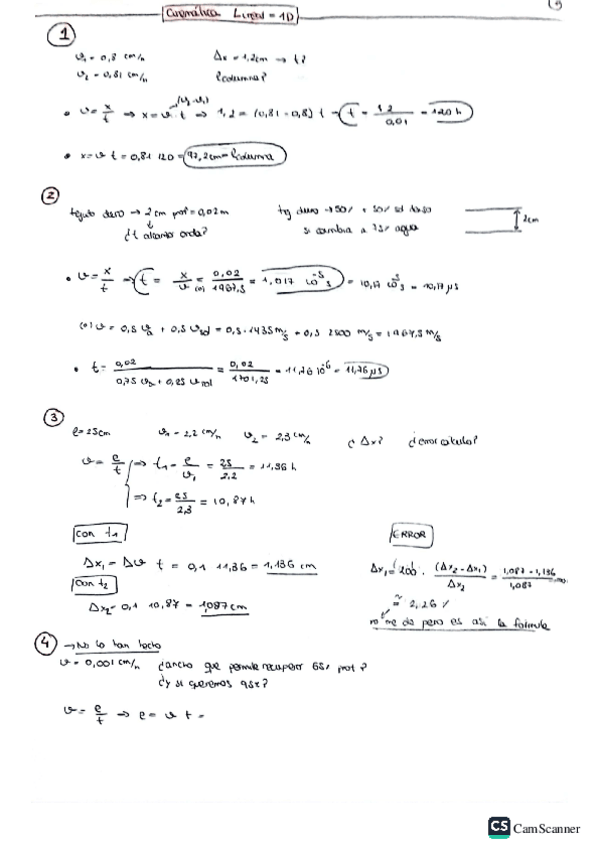 Cinemática Lineal = 1D
1
v₁ = 0,8 cm/h Δx = 1,2cm → t?
v₂ = 0,81 cm/h ℓcolumna?
(v₂-v₁)
• v = x/t ⇒ x = v · t ⇒ 1,2 = (0,81 - 0,8) t → t = 1,2/0,01 = 120 h
• x = v t = 0,81 120 = 97,2cm = ℓcolumna
2
tejido duro → 2 cm prof = 0,02m tej duro → 50% + 50% sol
¿t alcanzar onda? si cambia a 75% agua
2cm
• v = x/t → t = x/v (*) = 0,02/1967,5 = 1,017 10⁻⁵ s = 10,17 s = 10,17 μs
(*) v = 0,5 va + 0,5 vsol = 0,5 · 1435 m/s + 0,5 2500 m/s = 1967,5 m/s
• t = 0,02/0,75 va + 0,25 vsol = 0,02/1701,25 = 11,76 10⁻⁶ = 11,76 μs
3
e = 25cm v₁ = 2,2 cm/h v₂ = 2,3 cm/h ¿Δx? ¿error calculo?
v = e/t ⇒ t₁ = e/v₁ = 25/2,2 = 11,36 h
⇒ t₂ = 25/2,3 = 10,87 h
con t₁ ERROR
Δx₁ = Δv t = 0,1 11,36 = 1,136 cm
con t₂
Δx₁ = 100 · (Δx₂ - Δx₁)/Δx₂ = 1,087 - 1,136/1,087
Δx₂ = 0,1 10,87 = 1,087 cm
= 2,26 %
no me da pero es asi la formula
4 → No lo tan
v = 0,001 cm/h ¿ancho que permite recuperar 65% prot?
¿y si queremos 95%?
v = e/t → e = v t =
CS CamScanner